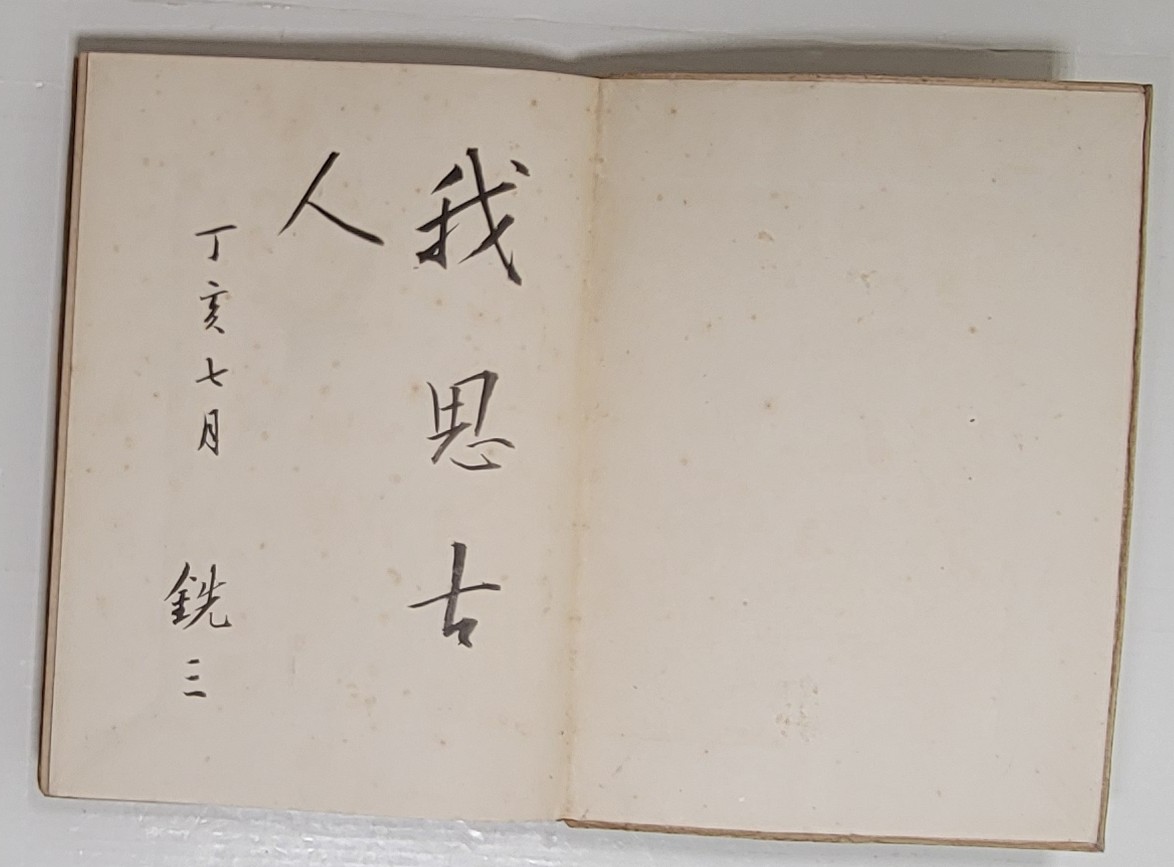 我思古
人
丁亥七月 銑三